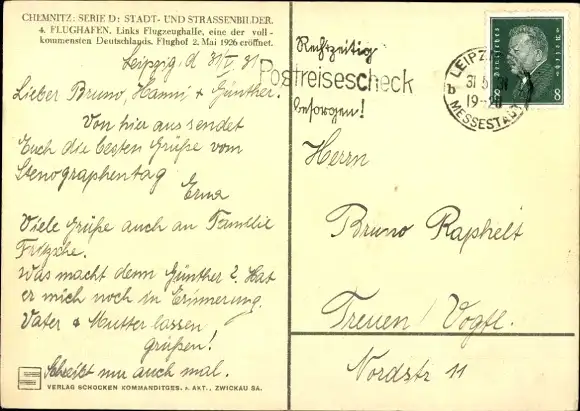 CHEMNITZ: SERIE D: STADT- UND STRASSENBILDER.
4. FLUGHAFEN. Links Flugzeughalle, eine der voll-
kommensten Deutschlands. Flughof 2. Mai 1926 eröffnet.
Leipzig, d 31/V. 31
Lieber Bruno, Hanni & Günther.
Von hier aus sendet
Euch die besten Grüße vom
Stenographentag
Erna
Viele Grüße auch an Familie
Fritzsche.
Was macht denn Günther? Hat
er mich noch in Erinnerung.
Vater & Mutter lassen
grüßen!
Schreibt nur auch mal.
VERLAG SCHOCKEN KOMMANDITGES. a. AKT., ZWICKAU SA.
Rechtzeitig
Postreisescheck
besorgen!
LEIPZIG
b
31.5.
19-20
MESSESTADT
Deutsches Reich
8 8
Herrn
Bruno Raphelt
Treuen / Vogtl.
Nordstr 11